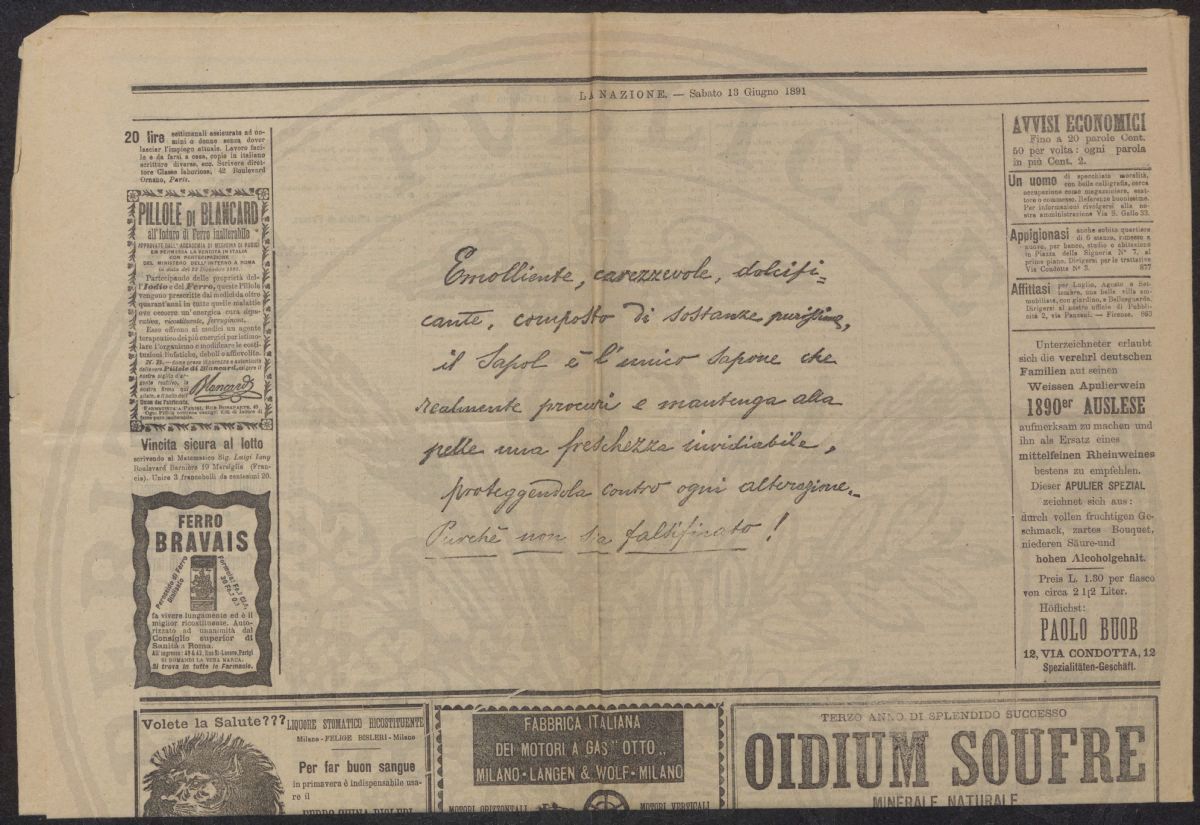 LA NAZIONE. — Sabato 13 Giugno 1891
20 lire settimanali assicurate ad uo-
mini o donne senza dover
lasciar l'impiego attuale. Lavoro faci-
le e da farsi a casa, copie in italiano
scritture diverse, ecc. Scrivere diret-
tore Classe laboriose, 42 Boulevard
Ornano, Paris.
PILLOLE DI BLANCARD
all'Ioduro di Ferro inalterabile
APPROVATE DALL'ACCADEMIA DI MEDICINA DI PARIGI
CON PARTECIPAZIONE
DEL MINISTERO DELL'INTERNO A ROMA
Partecipando delle proprietà del-
l'Iodio e del Ferro, queste Pillole
vengono prescritte dai medici da oltre
quarant'anni in tutte quelle malattie
ove occorre un'energica cura depu-
rativa, ricostituente, ferruginosa.
Esse offrono ai medici un agente
terapeutico dei più energici per istimo-
lare l'organismo e modificare le costi-
tuzioni linfatiche, deboli o affievolite.
Blancard
Vincita sicura al lotto
scrivendo al Matematico Sig. Luigi Iany
Boulevard Barnière 19 Marsiglia (Fran-
cia). Unire 3 francobolli da centesimi 20.
FERRO
BRAVAIS
Perossido di Ferro
Dializzato
fa vivere lungamente ed è il
miglior ricostituente. Auto-
rizzato ad unanimità dal
Consiglio superior di
Sanità a Roma.
SI DOMANDI LA VERA MARCA.
Si trova in tutte le Farmacie.
Emolliente, carezzevole, dolcifi-
cante, composto di sostanze purissime,
il Sapol è l'unico sapone che
realmente procuri e mantenga alla
pelle una freschezza invidiabile,
proteggendola contro ogni alterazione.
Purchè non sia falsificato!
AVVISI ECONOMICI
Fino a 20 parole Cent.
50 per volta: ogni parola
in più Cent. 2.
Un uomo di specchiata moralità,
con bella calligrafia, cerca
occupazione come magazziniere, esat-
tore o commesso. Referenze buonissime.
Per informazioni rivolgersi alla no-
stra amministrazione Via S. Gallo 33.
Appigionasi anche subito quartiere
di 6 stanze, rimesso a
nuovo, per banco, studio o abitazione
in Piazza della Signoria N° 7, al
primo piano. Dirigersi per le trattative
Via Condotta N° 3. 877
Affittasi per Luglio, Agosto e Set-
tembre, una bella villa am-
mobiliata, con giardino, a Bellosguardo.
Dirigersi al nostro ufficio di Pubbli-
cità 2, via Panzani. — Firenze. 893
Unterzeichneter erlaubt
sich die verehrl deutschen
Familien auf seinen
Weissen Apulierwein
1890er AUSLESE
aufmerksam zu machen und
ihn als Ersatz eines
mittelfeinen Rheinweines
bestens zu empfehlen.
Dieser APULIER SPEZIAL
zeichnet sich aus:
durch vollen fruchtigen Ge-
schmack, zartes Bouquet,
niederen Säure-und
hohen Alcoholgehalt.
Preis L. 1.30 per fiasco
von circa 2 1|2 Liter.
Höflichst:
PAOLO BUOB
12, VIA CONDOTTA, 12
Spezialitäten-Geschäft.
Volete la Salute???
LIQUORE STOMATICO RICOSTITUENTE
Milano - FELICE BISLERI - Milano
Per far buon sangue
in primavera è indispensabile usa-
re il
FERRO CHINA BISLERI
FABBRICA ITALIANA
DEI MOTORI A GAS "OTTO"
MILANO - LANGEN & WOLF - MILANO
MOTORI ORIZZONTALI
MOTORI VERTICALI
TERZO ANNO DI SPLENDIDO SUCCESSO
OIDIUM SOUFRE
MINERALE NATURALE